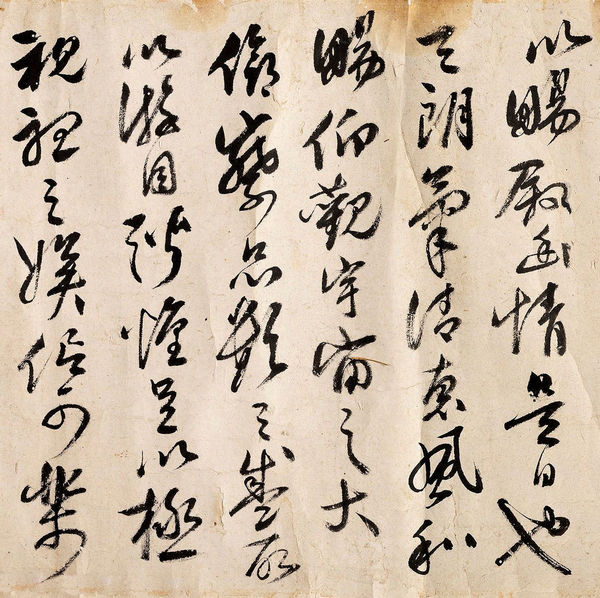 以暢敘幽情是日也
天朗氣清惠風和
暢仰觀宇宙之大
俯察品類之盛所
以游目騁懷足以極
視聽之娛信可樂